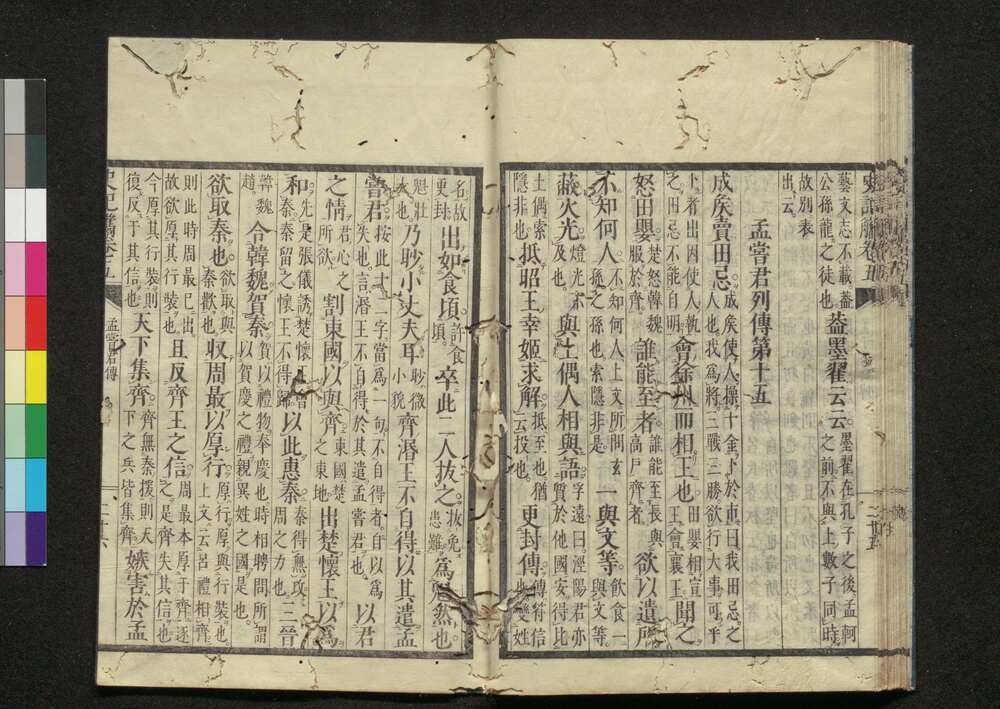 藝文志不載蓋
公孫龍之徒也 葢墨翟云云 墨翟在孔子之後孟軻之前不與上數子同時
故別表
出云
孟嘗君列傳第十五
成矦賣田忌 成矦使人操十金卜於市曰我田忌之人也我爲將三戰三勝欲行大事可乎
卜者出因使人執之田忌不能自明 會徐州而相王也 田嬰相宣王會襄王 聞之
怒田嬰 楚怒韓魏服於齊 誰能至者 誰能至長與高戸齊者 欲以遺所
不知何人 不知何人上文所問玄孫之孫也索隱非是 一與文等 飲食一與文等
蔽火光 燈光不及也 與土偶人相與語 孚遠曰涇陽君亦質於他國安得比
土偶索隱非也 抵昭王幸姬求解 抵至也猶云投也 更封傳 傳符信也變姓
名故更封 出如食頃 許食頃 卒此二人拔之 拔免患難 爲魁然也
魁壯大也 乃眇小丈夫耳 眇微小貌 齊湣王不自得以其遣孟
嘗君 按此十二字當爲一句不自得者自以爲失也言湣王不自得於其遣孟嘗君也 以君
之情 君心之所欲 割東國以與齊 東國楚之東地 出楚懷王以爲
和 先是張儀誘楚懷王秦留之懷王不得歸 以此惠秦 秦得無攻周之力也 三晉
韓魏趙 令韓魏賀秦 賀以禮物奉慶也時相聘問所謂以賀慶之禮親異姓之國是也
欲取秦也 欲取與秦歡也 收周最以厚行 厚行厚與行裝也上文云呂禮相齊
則此時周最巳出故欲厚其行裝也 且反齊王之信 周最本厚于齊逐之是齊失其信也
今厚其行裝則復反于其信也 天下集齊 齊無秦援則天下之兵皆集齊 嫉害於孟
孟嘗君傳